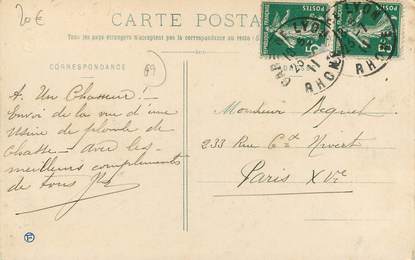 20€
CARTE POSTALE
Tous les pays étrangers n'acceptent pas la correspondance au recto
CORRESPONDANCE
69
A. Un Chasseur!
Envoi de la vue d'une
Usine de plomb de
Chasse – avec les
meilleurs compliments
de tous
POSTES
5
LYON
RHONE
LYON
RHONE
Monsieur Bequet
233 Rue Cx Nivert
Paris XVe